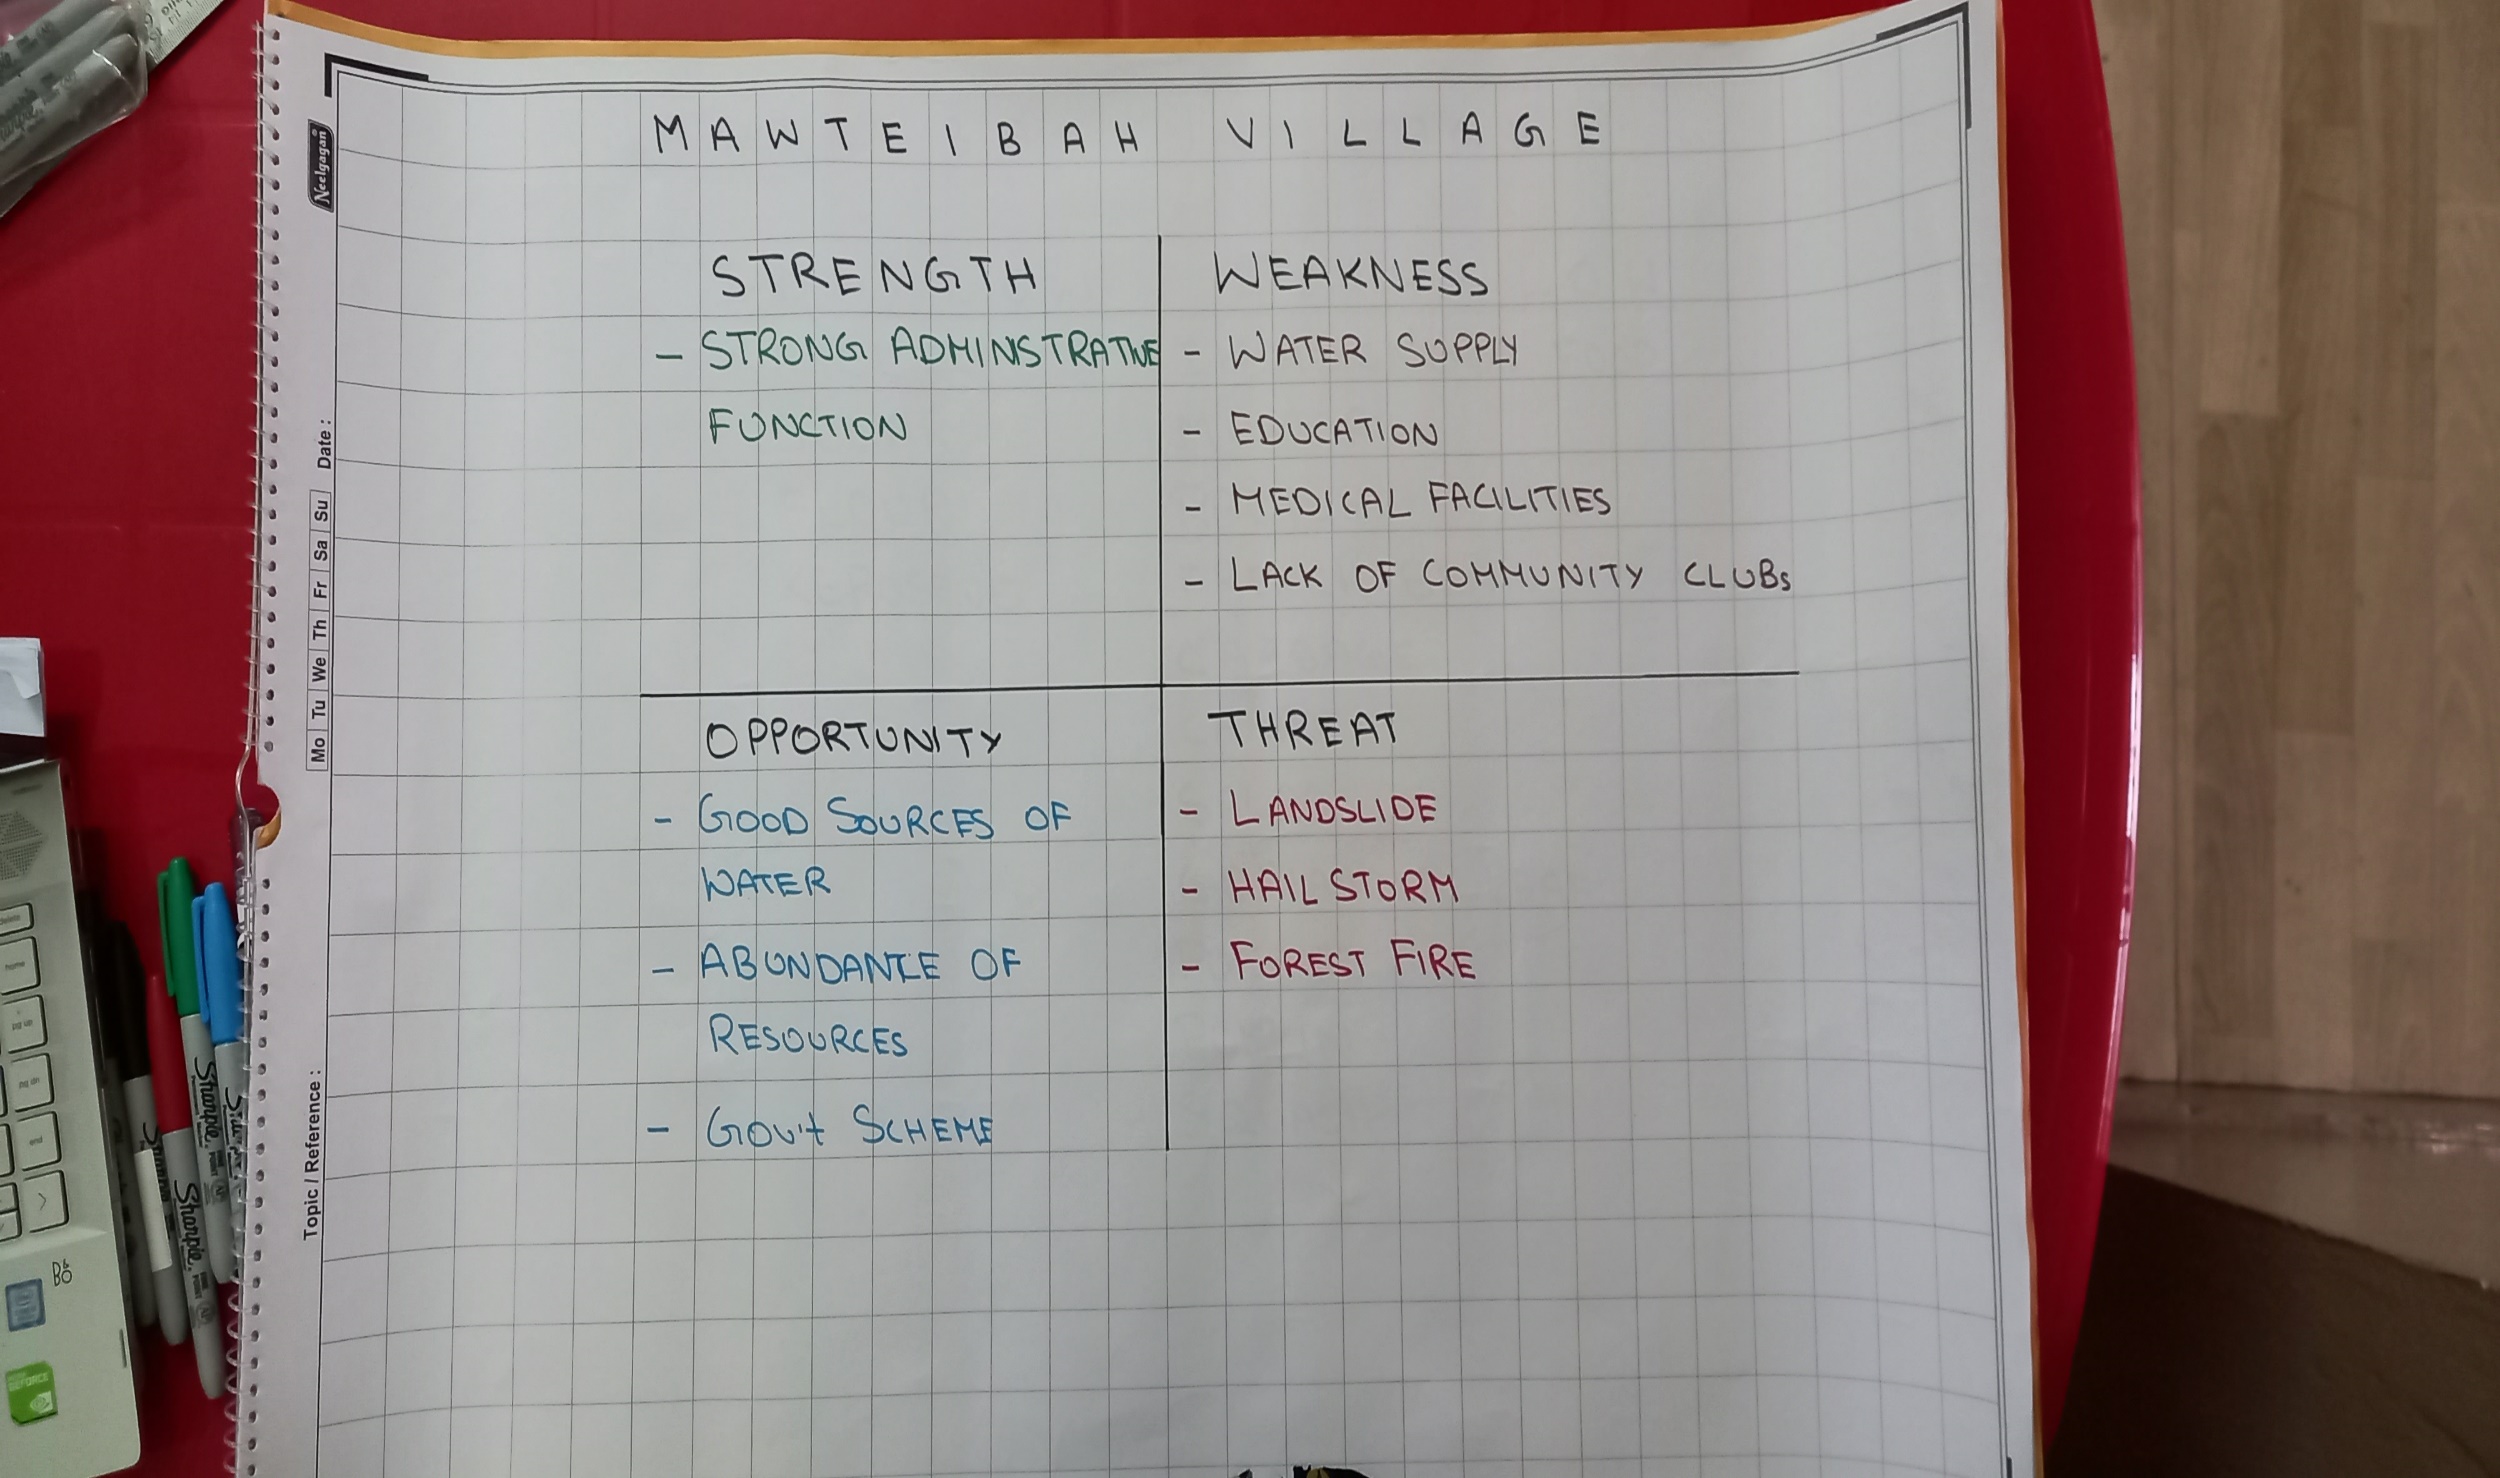 MAWTEIBAH VILLAGE
STRENGTH
- STRONG ADMINISTRATIVE
FUNCTION
WEAKNESS
- WATER SUPPLY
- EDUCATION
- MEDICAL FACILITIES
- LACK OF COMMUNITY CLUBs
OPPORTUNITY
- GOOD SOURCES OF
WATER
- ABUNDANCE OF
RESOURCES
- GOV't SCHEME
THREAT
- LANDSLIDE
- HAIL STORM
- FOREST FIRE
Neelgagan
Date :
Mo Tu We Th Fr Sa Su
Topic / Reference :
Sharpie
Sharpie
delete
home
pg up
pg dn
end
GEFORCE